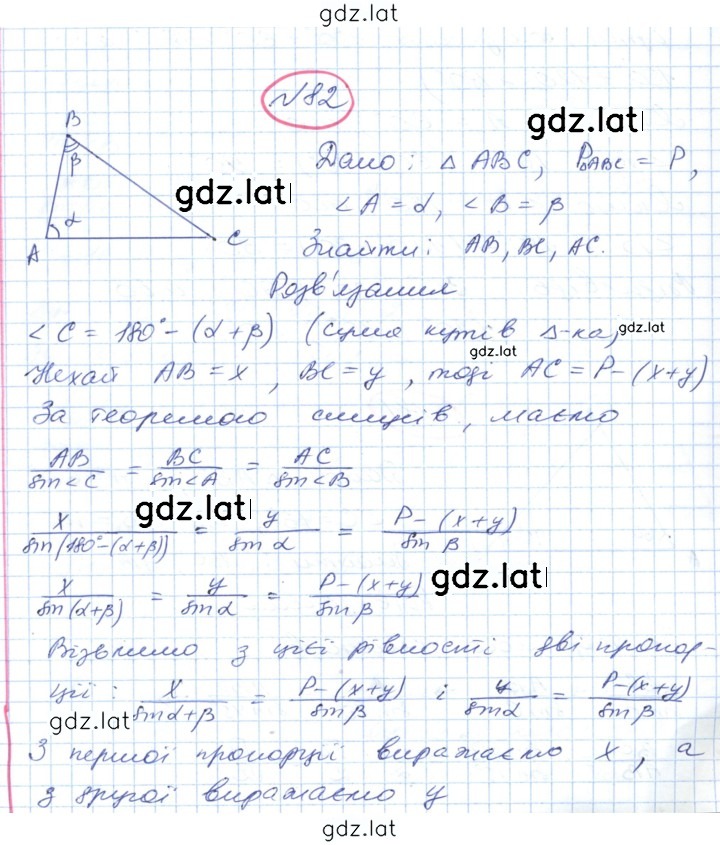 gdz.lat
№82
gdz.lat
B
β
gdz.lat
α
A
C
Дано: △ ABC, P△ABC = P,
∠A = α, ∠B = β
Знайти: AB, BC, AC.
Розв'язання
∠C = 180° - (α + β) (сума кутів △-ка)
gdz.lat
gdz.lat
Нехай AB = x, BC = y, тоді AC = P - (x + y)
За теоремою синусів, маємо
AB/sin∠C = BC/sin∠A = AC/sin∠B
gdz.lat
x/sin(180° - (α + β)) = y/sin α = P - (x + y)/sin β
x/sin(α + β) = y/sin α = P - (x + y)/sin β
gdz.lat
Візьмемо з цієї рівності дві пропор-
ції: x/sin α + β = P - (x + y)/sin β і y/sin α = P - (x + y)/sin β
gdz.lat
З першої пропорції виражаємо x, а
з другої виражаємо y
gdz.lat